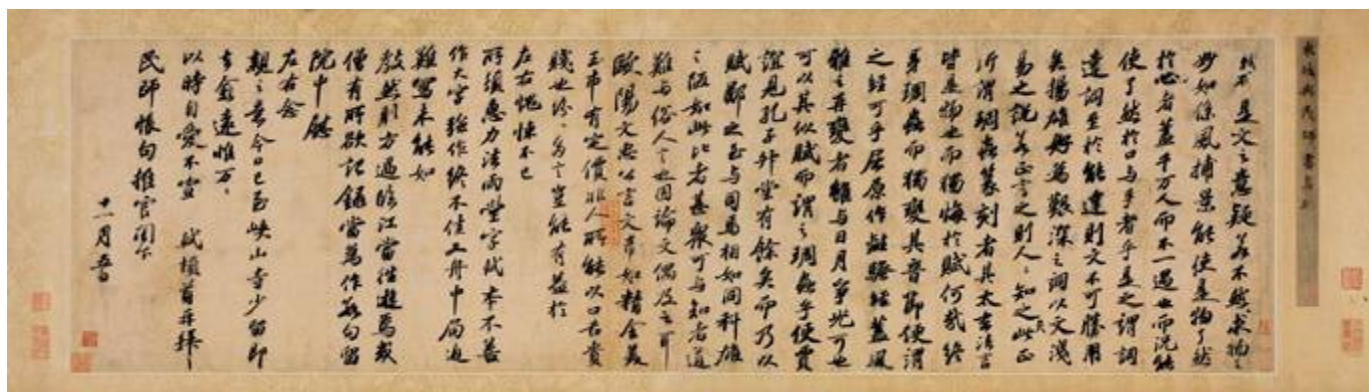 東坡與民師書
是文之意疑若不然求物之
妙如係風捕景能使是物了然
於心者蓋千万人而不一遇也而況能
使了然於口與手者乎是之謂詞
達詞至於能達則文不可勝用
矣揚雄好為艱深之詞以文淺
易之說若正言之則人人知之矣此正
所謂琱蟲篆刻者其太玄法言
皆是物也而獨悔於賦何哉終
身琱蟲而獨變其音節便謂
之經可乎屈原作離騷經蓋風
雅之再變者雖與日月爭光可也
可以其似賦而謂之琱蟲乎使賈
誼見孔子升堂有餘矣而乃以
賦鄙之至與司馬相如同科雄
之陋如此比者甚眾可與知者道
難與俗人言也因論文偶及之耳
歐陽文忠公言文章如精金美
玉市有定價非人所能以口舌貴
賤也紛紛多言豈能有益於
左右愧悚不已
所須惠力法雨堂字軾本不善
作大字強作終不佳又舟中局迫
難寫未能如
教然則方過臨江當往遊焉或
僧有所欲記錄當為作數句留
院中慰
左右念
親之意今日已至峽山寺少留即
去愈遠惟万万
以時自愛不宣 軾頓首再拜
民師帳句推官閣下
十一月五日